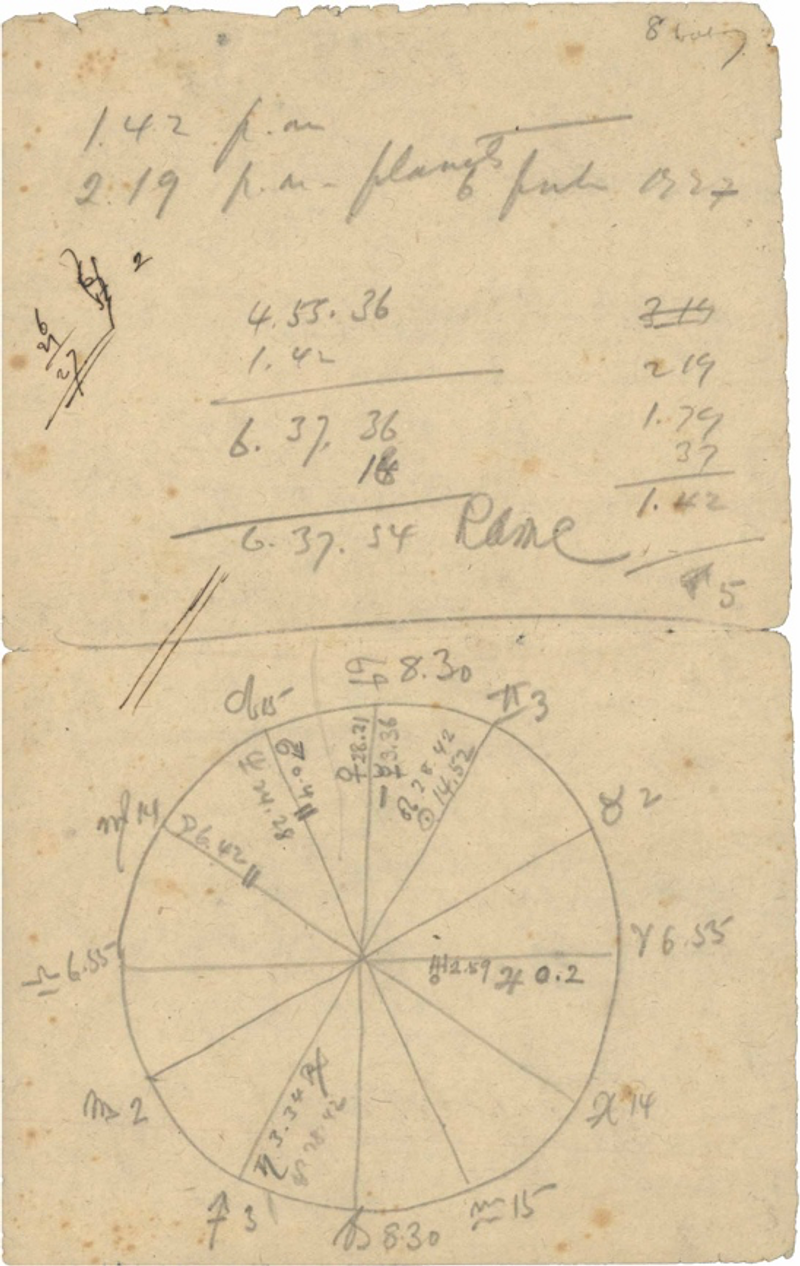 8
1.42 p.m
2.19 p.m - planets 6 1927
2
26
27
27
4.55.36
1.42
6.37.36
18
6.37.54 Rome
319
219
1.79
37
1.42
5
♋ 8.30
♊ 3
♌ 15
♉ 2
♍ 14
♎ 6.55
♈ 6.55
♏ 2
♓ 14
♐ 3
♑ 8.30
♒ 15
♀ 28.21
☿ 3.36
☊ 28.42
☉ 14.52
♂ 4.0
♆ 24.28
☽ 6.42
♅ 2.59 ♃ 0.2
♄ 3.34 ℞
28.42